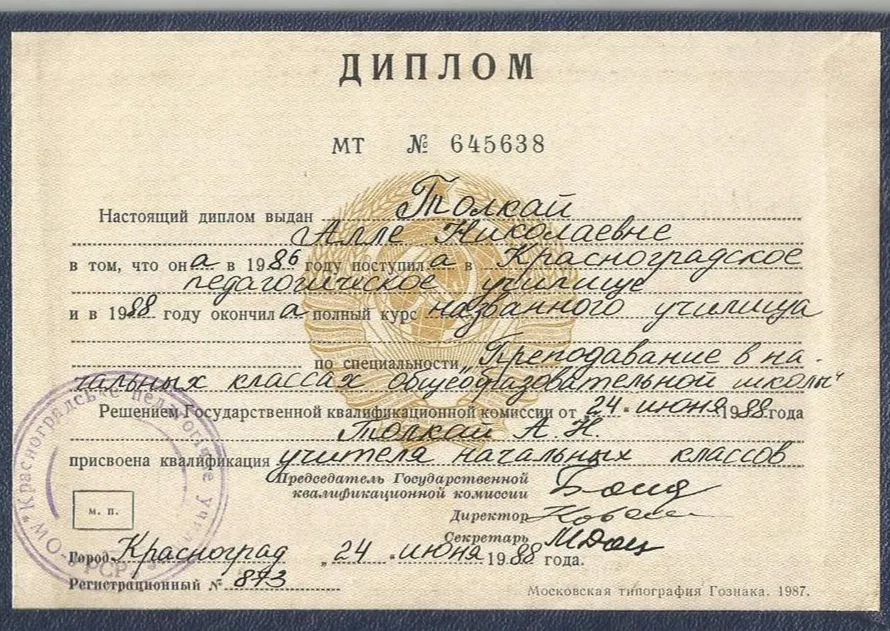 ДИПЛОМ
МТ № 645638
Настоящий диплом выдан Толкай
Алле Николаевне
в том, что он а в 19 86 году поступил а в Красноградское
педагогическое училище
и в 19 88 году окончил а полный курс названного училища
по специальности „Преподавание в на-
чальных классах общеобразовательной школы"
Решением Государственной квалификационной комиссии от 24 июня 19 88 года
Толкай А. Н.
присвоена квалификация учителя начальных классов
Председатель Государственной
квалификационной комиссии
Директор
Секретарь
м. п.
Город Красноград „ 24 " июня 19 88 года.
Регистрационный № 873
Московская типография Гознака. 1987.